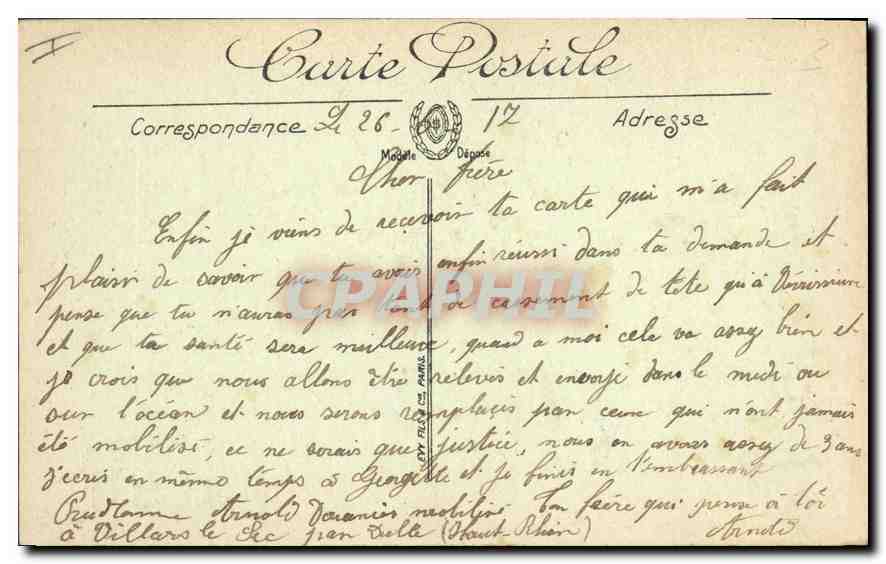 Carte Postale
Correspondance Le 26 17 Adresse
Modèle Déposé
Cher frère
Enfin je viens de recevoir ta carte qui m'a fait
plaisir de savoir que tu avais enfin réussi dans ta demande et
pense que tu n'auras pas tant de cassement de tete qu'à
et que ta santé sera meilleure, quand a moi cela va assez bien et
je crois que nous allons être relevés et envoyé dans le midi ou
sur l'océan et nous serons remplacés par ceux qui n'ont jamais
été mobilisé, ce ne serais que justice, nous en avons assez de 3 ans
j'ecris en même temps à Georgette et je finis en t'embrassant
Prudhomme Arnold Douanier mobilisé Ton frère qui pense à toi
à Villars le Sec par Delle (Haut-Rhin) Arnold
EVY FILS & Cie PARIS
CPAPHIL